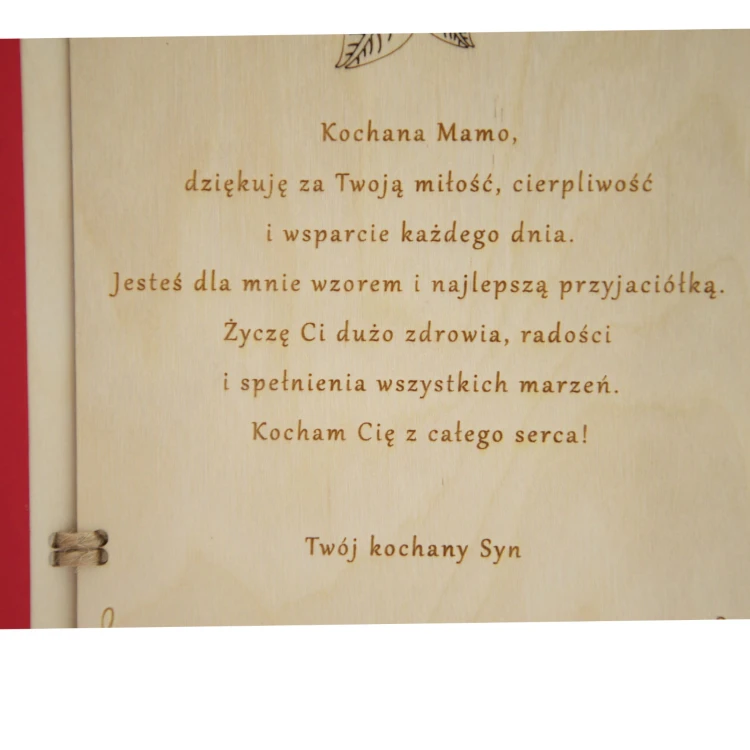 Kochana Mamo,
dziękuję za Twoją miłość, cierpliwość
i wsparcie każdego dnia.
Jesteś dla mnie wzorem i najlepszą przyjaciółką.
Życzę Ci dużo zdrowia, radości
i spełnienia wszystkich marzeń.
Kocham Cię z całego serca!
Twój kochany Syn